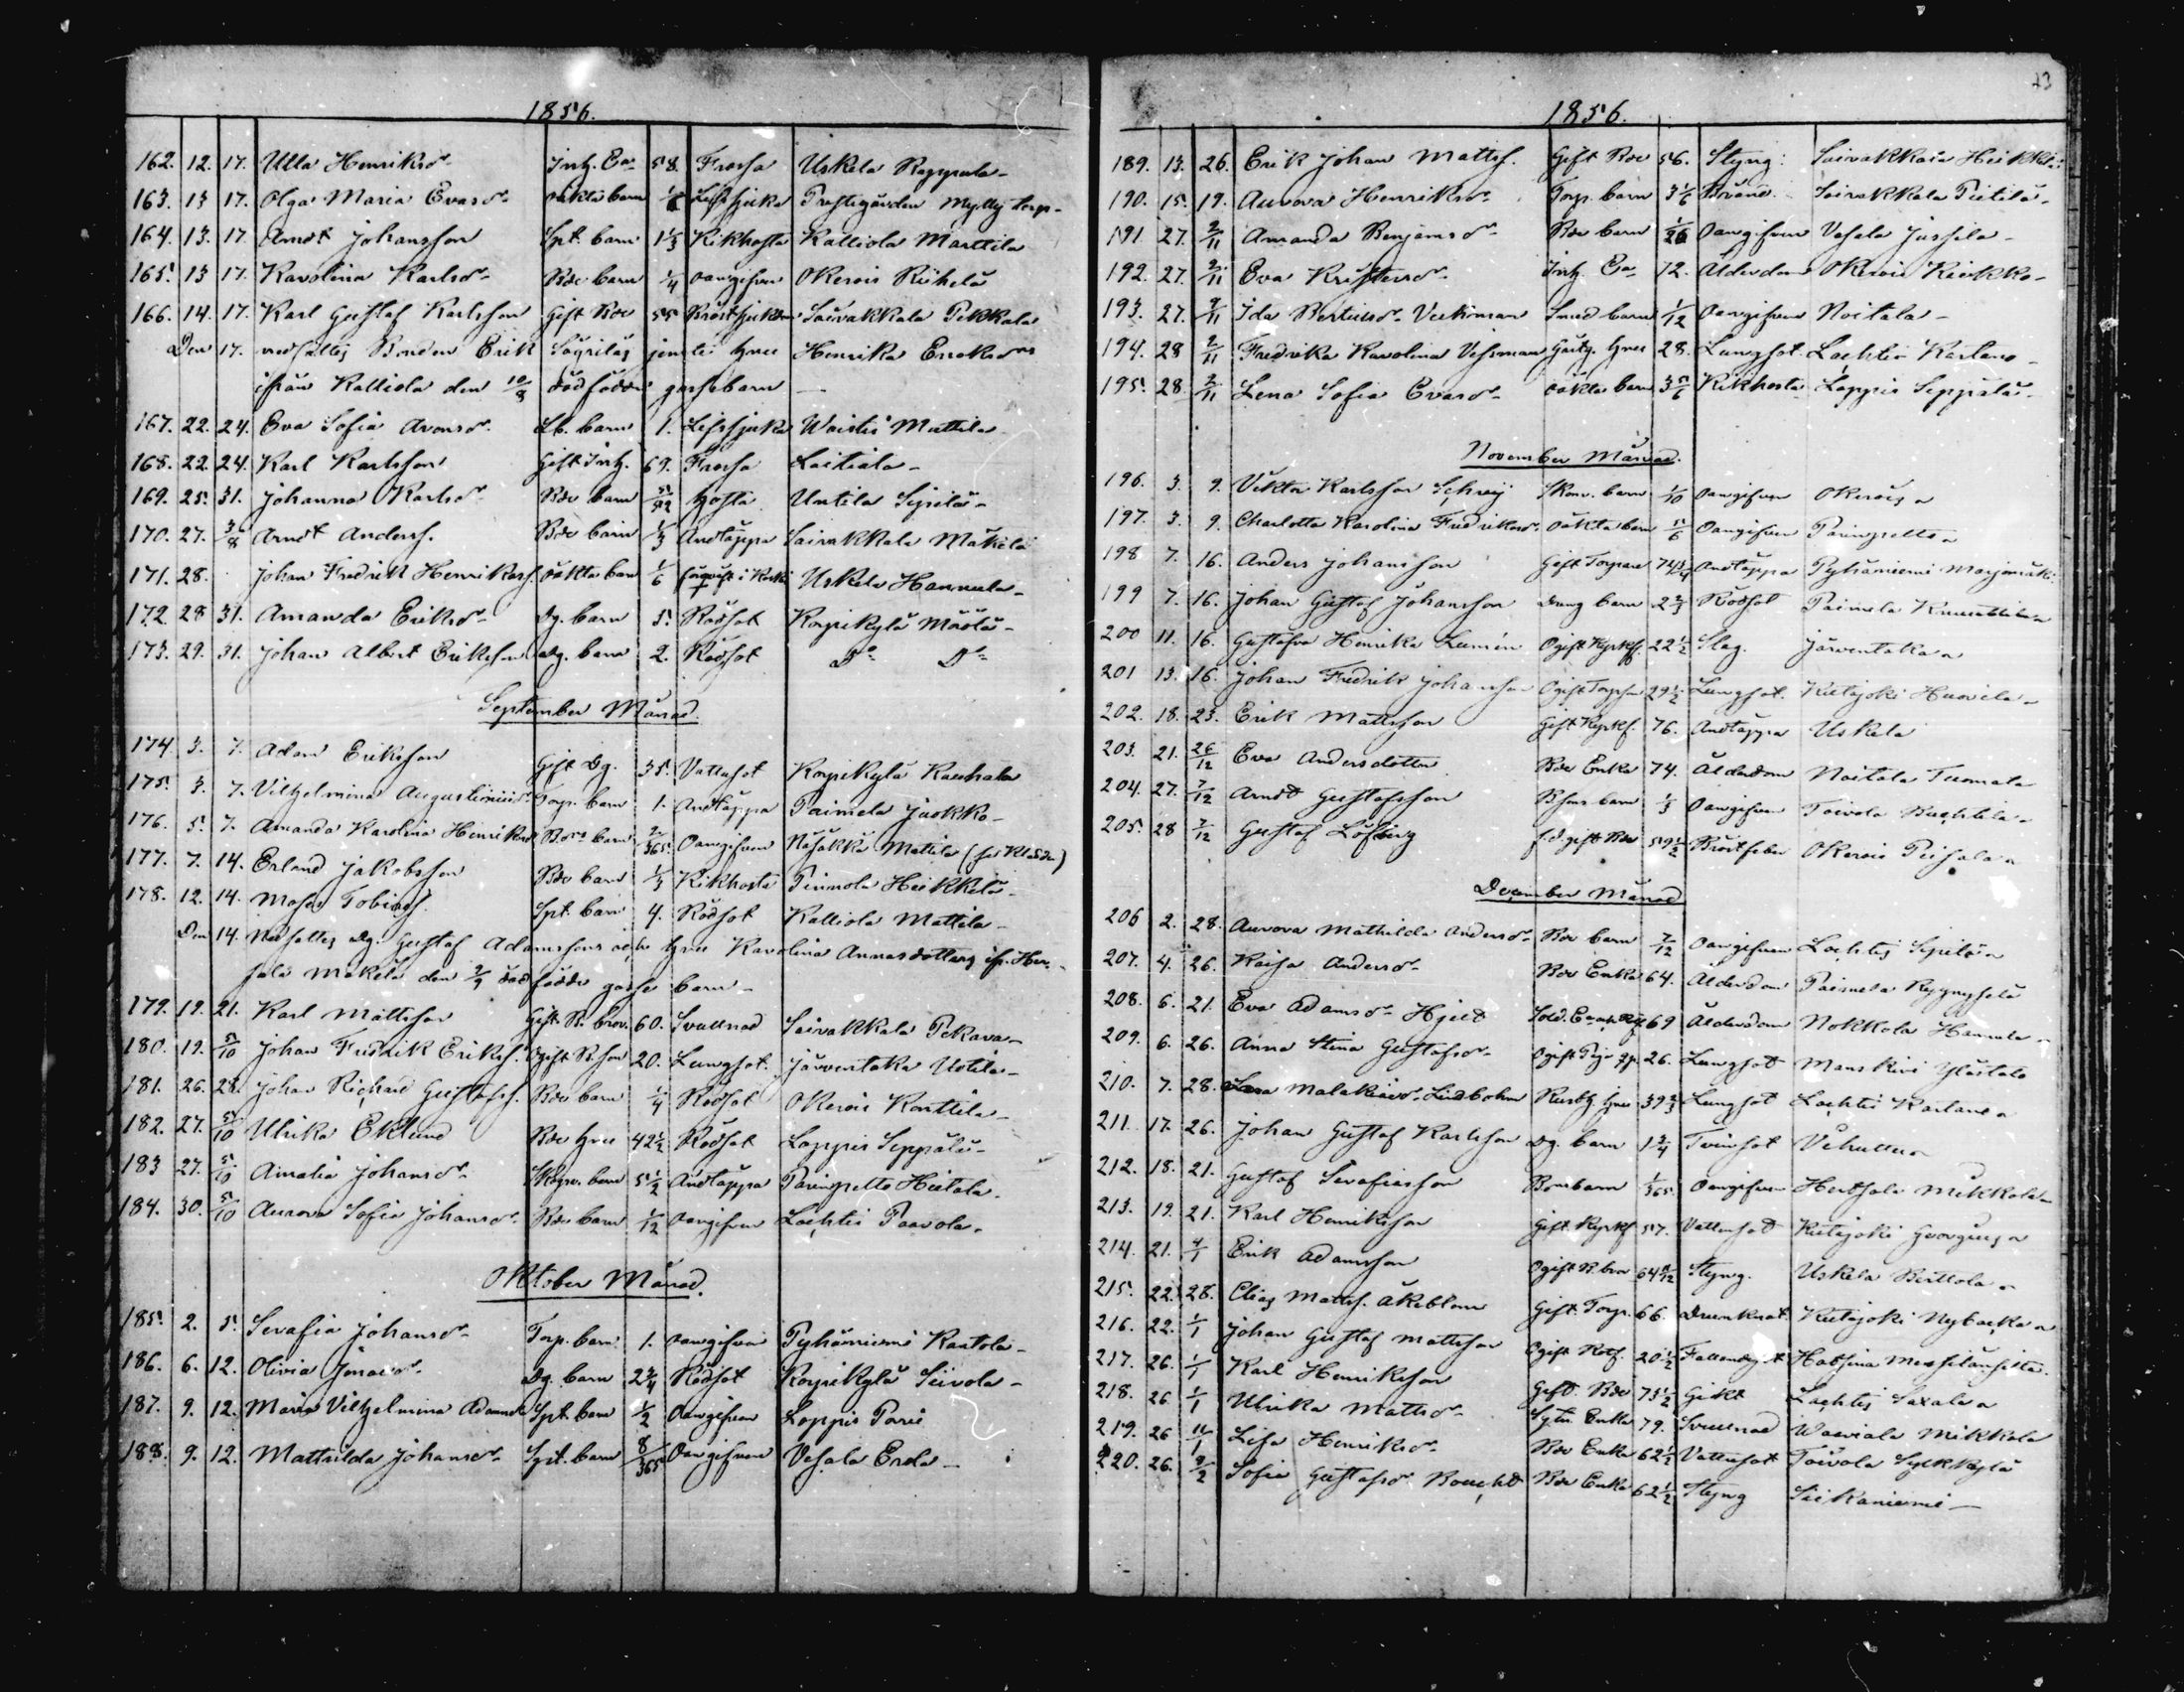 1856.
162. 12. 17. Ulla Henriksdr Inh. Ea 58. Frossa Uskela Reppula
163. 13 17. Olga Maria Evasdr oäkta barn Prestgården Mylly torp
164. 13. 17 Arndt Johansson Spt. barn 1 1/3 Kikhosta Kalliola Marttila
165. 13 17. Karolina Karlsdr Bde barn 1/4 oangifven Okerois Riihelä
166. 14. 17. Karl Gustaf Karlsson Gift Bde 55 Bröstsjukdom Sairakkala Pekkala
Den 17. nedsattes Bonden Erik hru Henrika
ifrån Kalliola den 10/8 dödfödda gossebarn
167. 22. 24. Eva Sofia Aronsdr barn 1. Lefsjuka Waistis Mattila
168. 22. 24. Karl Karlsson Gift Inh. 69. Frossa Laitiala
169. 25. 31. Johanna Karlsdr Bde barn 5/52 Hosta Untila Sipilä
170. 27. 3/8 Arndt Anderss. Bde barn 1/3 Andtäppa Sairakkala Mäkelä
171. 28. Johan Fredrik Henrikss. oäkta barn 1/6 Uskela Hannula
172. 28 31. Amanda Eriksdr Dg. barn 5. Rödsot Korpikylä Mäölä
173. 29. 31. Johan Albert Eriksson Dg. barn 2. Rödsot Do Do
September Månad.
174 3. 7. Adam Eriksson Gift Dg. 35. Vattusot Korpikylä Kauhala
175. 3. 7. Vilhelmina Augustinusdr Torp. barn 1. Andtäppa Paimela Jaakko
176. 5. 7. Amanda Karolina Henriksdr barn 2/365 Oangifven Nasakka Mattila
177. 7. 14. Erland Jakobsson Bde barn 1/3 Kikhosta Pinnola Heikkilä
178. 12. 14. Moses Tobiass. Spt. barn 4. Rödsot Kalliola Mattila
Den 14. Nedsattes Dg. Gustaf Adamssons hru Karolina Annasdotters ifr. Her-
sala Mäkelä den dödfödda gosse barn
179. 19. 21. Karl Mattsson Gift B. bror. 60. Svullnad Sairakkala Pekava
180. 19. 5/10 Johan Fredrik Erikss. Ogift B. son 20. Lungsot. Järventaka Uotila
181. 26. 28. Johan Richard Gustafss. Bde barn 1/4 Rödsot Okerois Konttila
182. 27. 5/10 Ulrika Eklund Bde hru 42 1/2 Rödsot Loppis Seppälä
183 27. 5/10 Amalia Johansdr barn 5 1/2 Andtäppa Paringretto Hietala
184. 30. 5/10 Aurora Sofia Johansdr Bde barn 1/12 oangifven Lachtis Paavola
Oktober Månad.
185. 2. 5. Serafia Johansdr Torp. barn 1. oangifven Pyhäniemi Kartola
186. 6. 12. Olivia Jonasdr Dg. barn 2 3/4 Rödsot Korpikylä Seivola
187. 9. 12. Maria Vilhelmina Adamsdr Spt. barn 1/2 Oangifven Loppis Parri
188. 9. 12. Mathilda Johansdr Spt. barn 8/365 Oangifven Vesala Erola
1856.
189. 13. 26. Erik Johan Mattss. Gift Bde 56. Styng: Sairakkala Heikkilä
190. 15. 19. Aurora Henriksdr Torp. barn 3 1/6 Bränd. Sairakkala Pietilä
191 27. 2/11 Amanda Benjamsdr Bde barn 1/26 Oangifven Vesala Jussila
192. 27. 2/11 Eva Kristersdr Inh. Ea 72. Ålderdom Okerois Kiekko
193. 27. 2/11 Ida Bertilsdr Veckman Smed barn 1/12 Oangifven Noitala
194. 28 2/11 Fredrika Karolina Vehsman hru 28. Lungsot. Lachtis Karlano
195. 28 2/11 Lena Sofia Evasdr oäkta barn 3 5/6 Kikhosta Loppis Seppälä
November Månad.
196. 3. 9. Viktor Karlsson barn 1/10 Oangifven Okerois
197. 3. 9. Charlotta Karolina Fredriksdr oäkta barn 5/6 Oangifven Paringretto
198 7. 16. Anders Johansson Gift Torpare Andtäppa Pyhäniemi Marjomäki
199 7. 16. Johan Gustaf Johansson Dräng barn 2 2/3 Rödsot Paimela
200 11. 16. Gustafva Henrika Lumén Ogift 22 1/2 Slag. Järventaka
201 13. 16. Johan Fredrik Johansson Ogift Torpson 29 1/2 Lungsot. Kutajoki Huovila
202. 18. 23. Erik Mattsson Gift 76. Andtäppa Uskela
203. 21. 26/12 Eva Andersdotter Bde Enka 74. Ålderdom Noitala Tuomala
204. 27. 7/12 Arndt Gustafsson barn 1/3 Oangifven Toivola Bachtila
205. 28 7/12 Gustaf Löfberg f.d. gift Bde 59 1/2 Bröstfeber Okerois Piisala
December Månad
206 2. 28. Aurora Mathilda Andersdr Bde barn 7/12 Oangifven Lachtis Sipilä
207. 4. 26. Kaisa Andersdr Bde Enka 64. Ålderdom Paimela
208. 6. 21. Eva Adamsdr Hjelt Sold. 69 Ålderdom Nokkola Hannula
209. 6. 26. Anna Stina Gustafsdr Ogift 26. Lungsot Manskivi Yläntalo
210. 7. 28. Sara Malakiasdr Lindbohm hru 39 2/3 Lungsot Lachtis Karlano
211. 17. 26. Johan Gustaf Karlsson Dg. barn 1 3/4 Tvinsot Vihulla
212. 18. 21. Gustaf Serafiasson barn 1/365 Oangifven Hertsala Mikkola
213. 19. 21. Karl Henriksson Gift 57. Vattusot Kutajoki
214. 21. 4/1 Erik Adamsson Ogift B. bror Styng. Uskela Berttola
215. 22. 28. Elias Mattss. Åkeblom Gift. Torp. 66. Drunknat Kutajoki Nybacka
216. 22. 1/1 Johan Gustaf Mattsson Ogift 20 1/2 Fallandesot
217. 26. 1/1 Karl Henriksson Gift. Bde 73 1/2 Gikt Lachtis Saxala
218. 26 1/1 Ulrika Mattsdr Enka 79. Svullnad Mikkola
219. 26 Lisa Henriksdr Bde Enka 62 1/2 Vattusot Toivola
220. 26. 2/2 Sofia Gustafsdr Bde Enka 62 1/2 Styng Siikaniemi